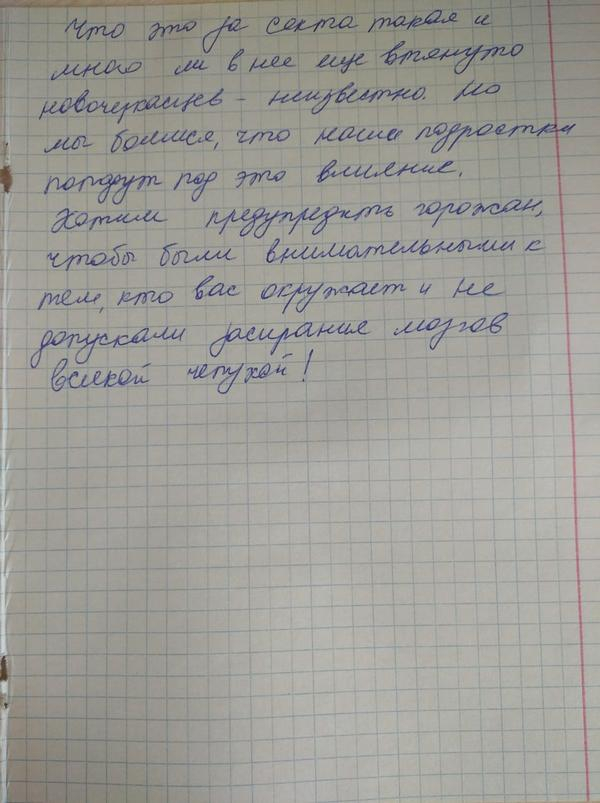 Что это за секта такая и
много ли в нее еще втянуто
новочеркасцев - неизвестно. Но
мы боимся, что наши подростки
попадут под это влияние.
Хотим предупредить горожан,
чтобы были внимательными к
тем, кто вас окружает и не
допускали засирания мозгов
всякой чепухой!